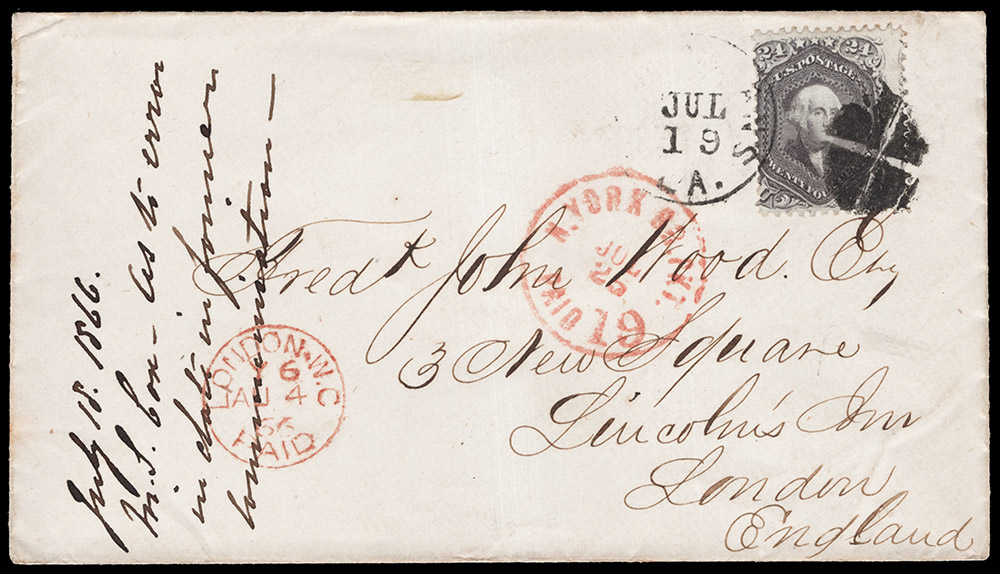 24 24
U.S. POSTAGE
TWENTY FOU
JUL
19
LA.
N. YORK AM. PKT.
JUL
PAID 19
Fredk John Wood. Esq
3 New Square
Lincoln's Inn
London
England
LONDON. W.C
6
AU 4
66
PAID
July 18. 1866.
as to error
in date in former
communication —